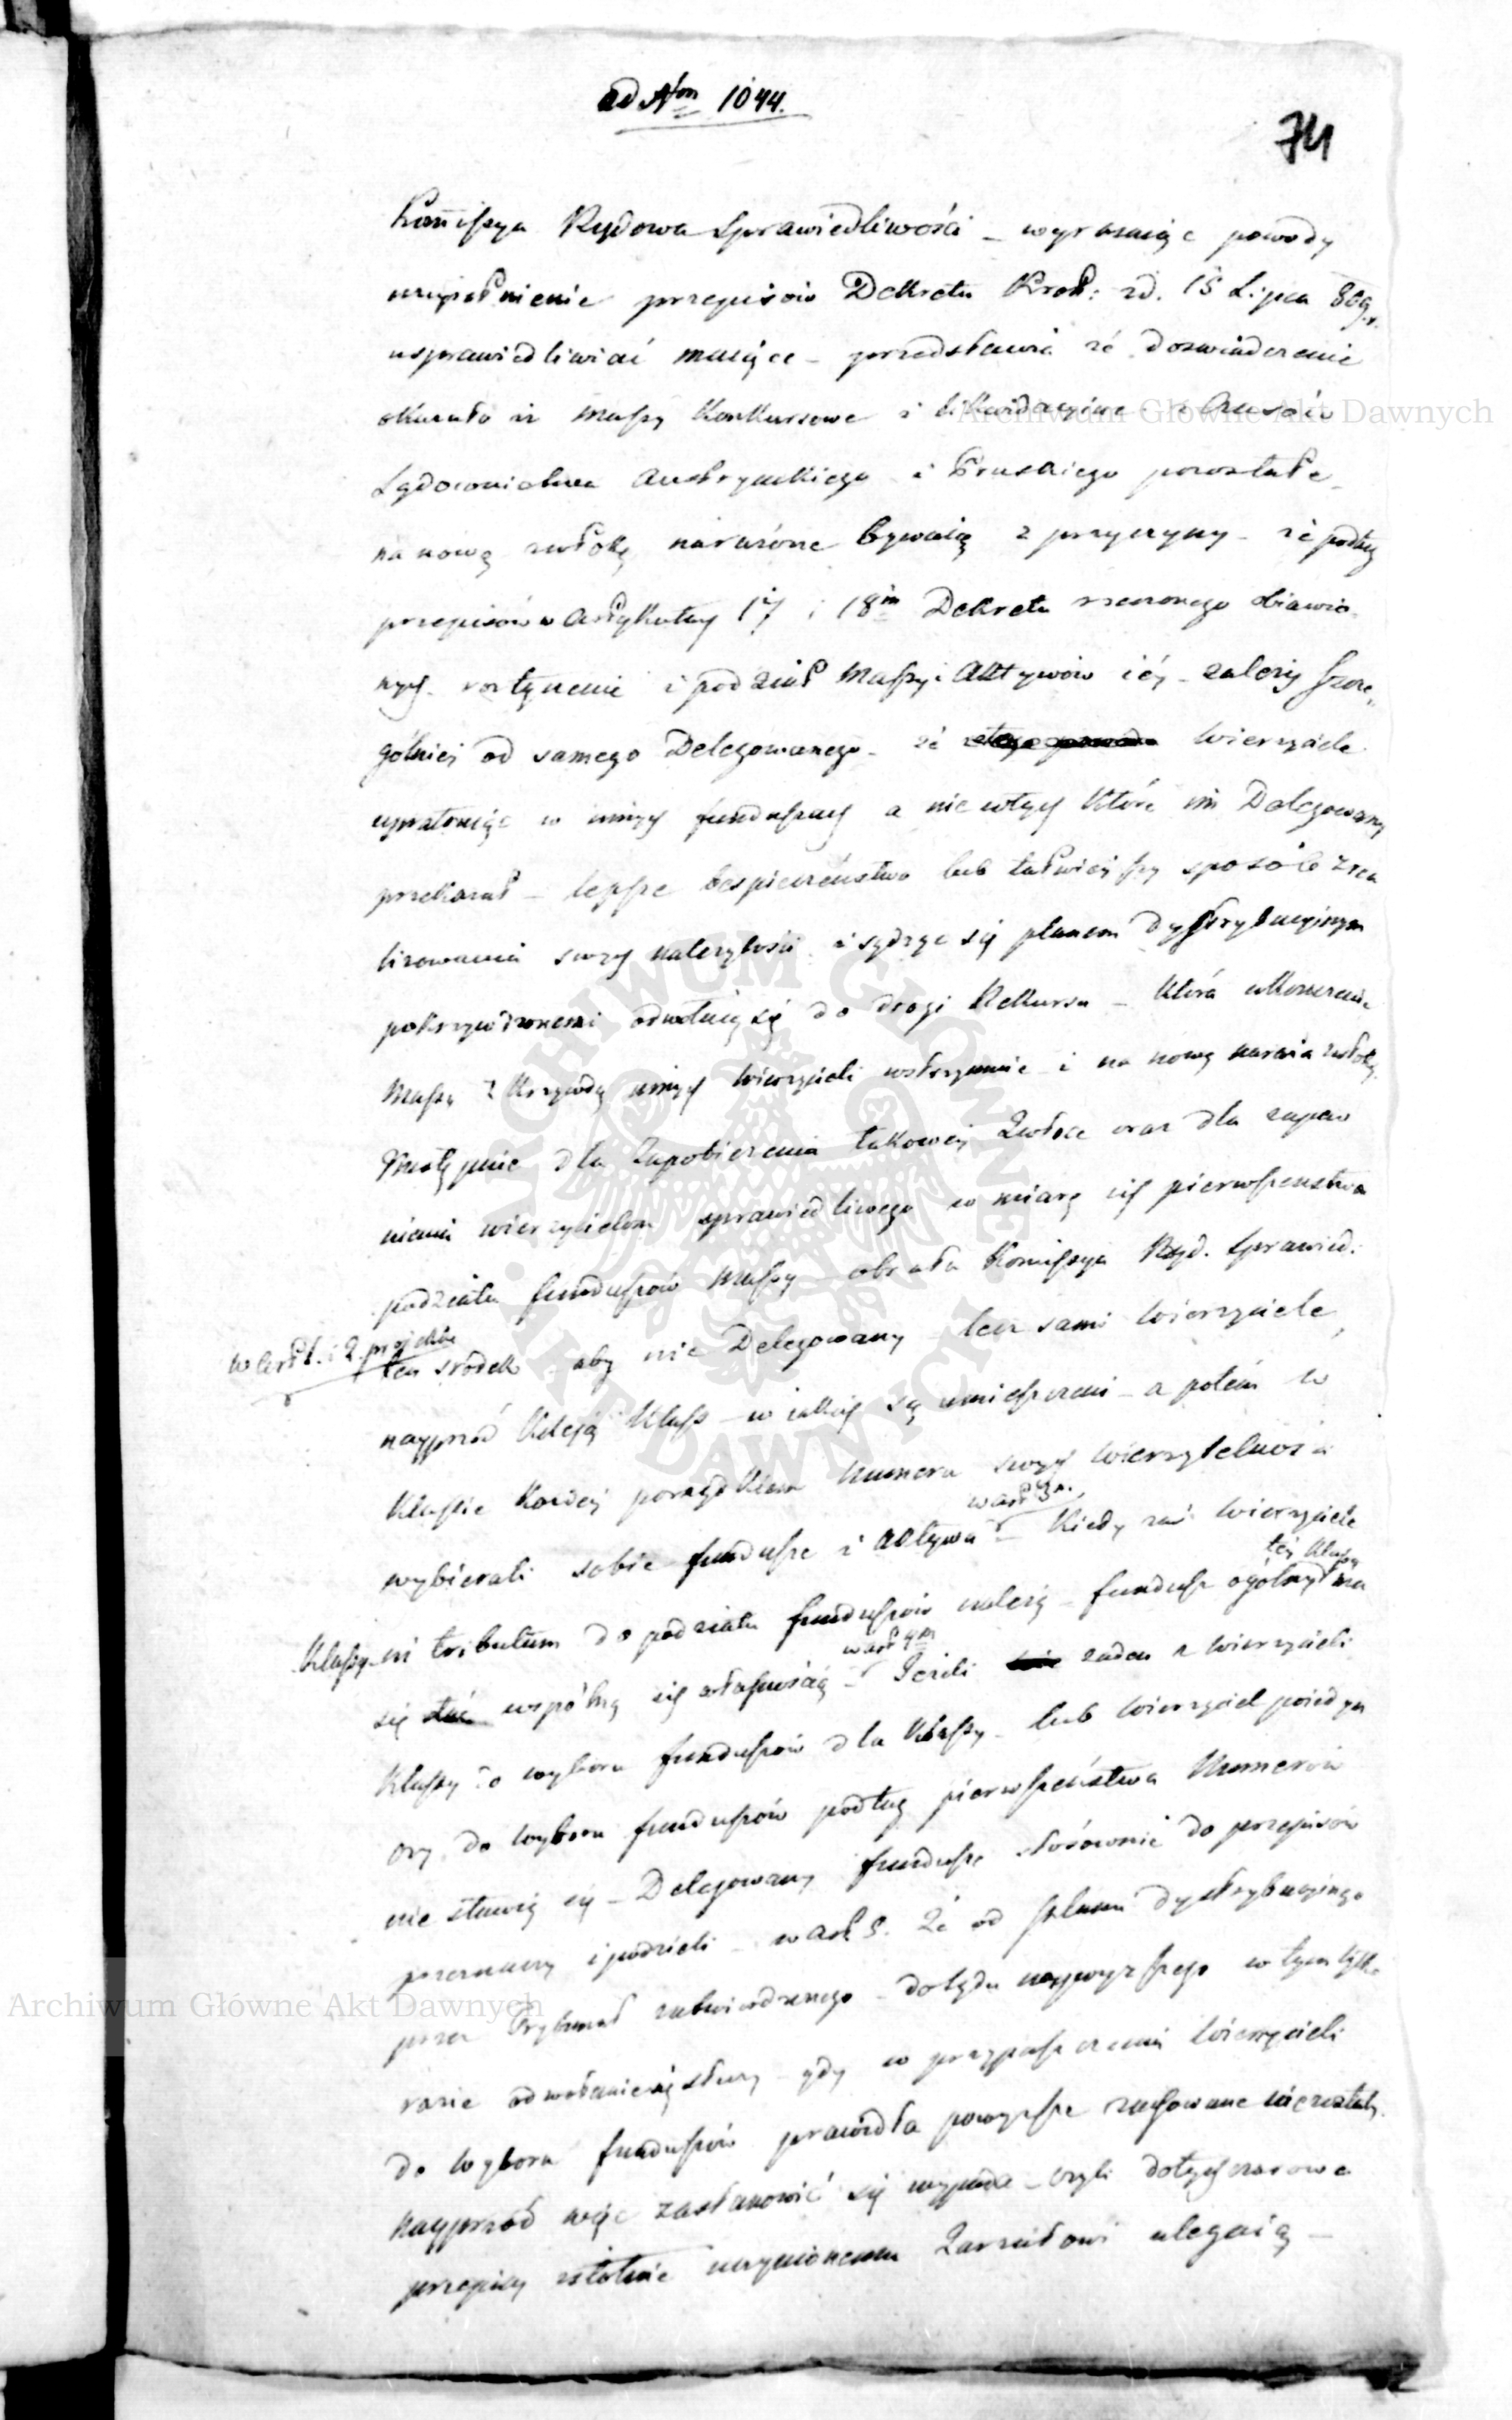 ad Nrm 1044.
74
Komissya Rządowa Sprawiedliwości – wyrażaiąc powody
przepisów Dekretu Król: zd. 15 Lipca 809 r.
usprawiedliwiać maiące – przedstawia że doświadczenie
okazało iż massy konkursowe i likwidacyine z czasów
Sądownictwa Austryackiego i Pruskiego pozostałe
na nową zwłokę narażone bywaią z przyczyny – że podług
przepisów w Artykułach 17 i 18m Dekretu rzeczonego obiawio-
nych – i podział Massy i Aktywów iéy – zależy szcze-
gólniéy od samego Delegowanego – że wierzyciele
upatruiąc w innych funduszach a nie w tych które im Delegowany
przekazał – lepsze bespieczeństwo lub łatwieyszy sposób zrea
lizowania swych należytości i sądząc się planem dystrybucyinym
pokrzywdzonemi odwołuią się do drogi Rekursu – która ukończenie
Massy z krzywdą innych wierzycieli wstrzymuie i na nową naraża zwłokę.
dla zapobieżenia takowéy zwłoce oraz dla zapew
nienia wierzycielom sprawiedliwego w miarę ich pierwszeństwa
podziału funduszów Massy – obrała Komissya Rząd. Sprawied:
w Art 1. i 2. projektu
ten środek – aby nie Delegowany – lecz sami wierzyciele,
nayprzód koleją Klass – w iakich są umieszczeni – a potém w
Klassie każdéy porządkiem Numeru swych wierzytelności
wybierali sobie fundusze i Aktywa – kiedy zaś wierzyciele
w art 3m.
Klassy in tributum do podziału funduszów należą – fundusz ogólny ma
téy Klassy
się stać wspólną ich własnością – Jeżeli żaden z wierzycieli
w art 4m
Klassy do wyboru funduszów dla Klassy – lub wierzyciel poiedyn
czy do wyboru funduszów podług pierwszeństwa Numerów
nie stawią się – Delegowany fundusze stósownie do przepisów
przeznaczy i podzieli – w Art 5. Że od planu dystrybucyinego
przez Trybunał zatwierdzonego – do Sądu naywyższego w tym tylko
razie odwołanie się służy – gdy w przypuszczeniu wierzycieli
do wyboru funduszów prawidła powyższe zachowane nie zostały.
Nayprzód więc zastanowić się wypada – czyli dotychczasowe
przepisy istotnie uczynionemu Zarzutowi ulegaią –
Archiwum Główne Akt Dawnych
Archiwum Główne Akt Dawnych
ARCHIWUM GŁÓWNE AKT DAWNYCH